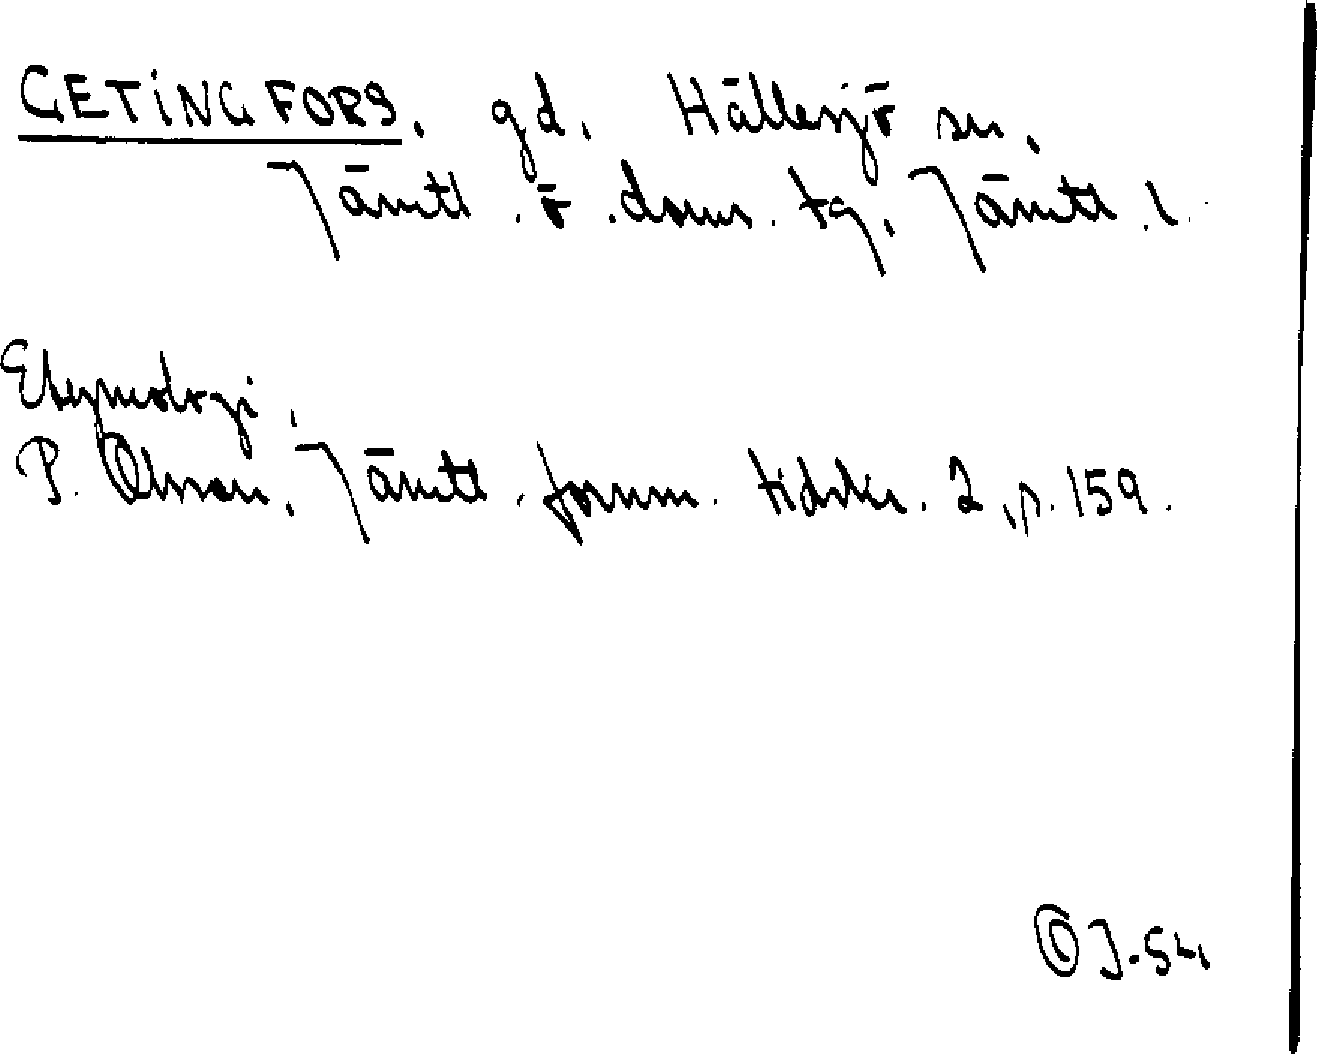 GETINGFORS. gd. Hällesjö sn.
Jämtl. ö. doms. tg. Jämtl. l.
Etymologi.
P. Olsson, Jämtl. fornm. tidskr. 2, p. 159.
© J-54